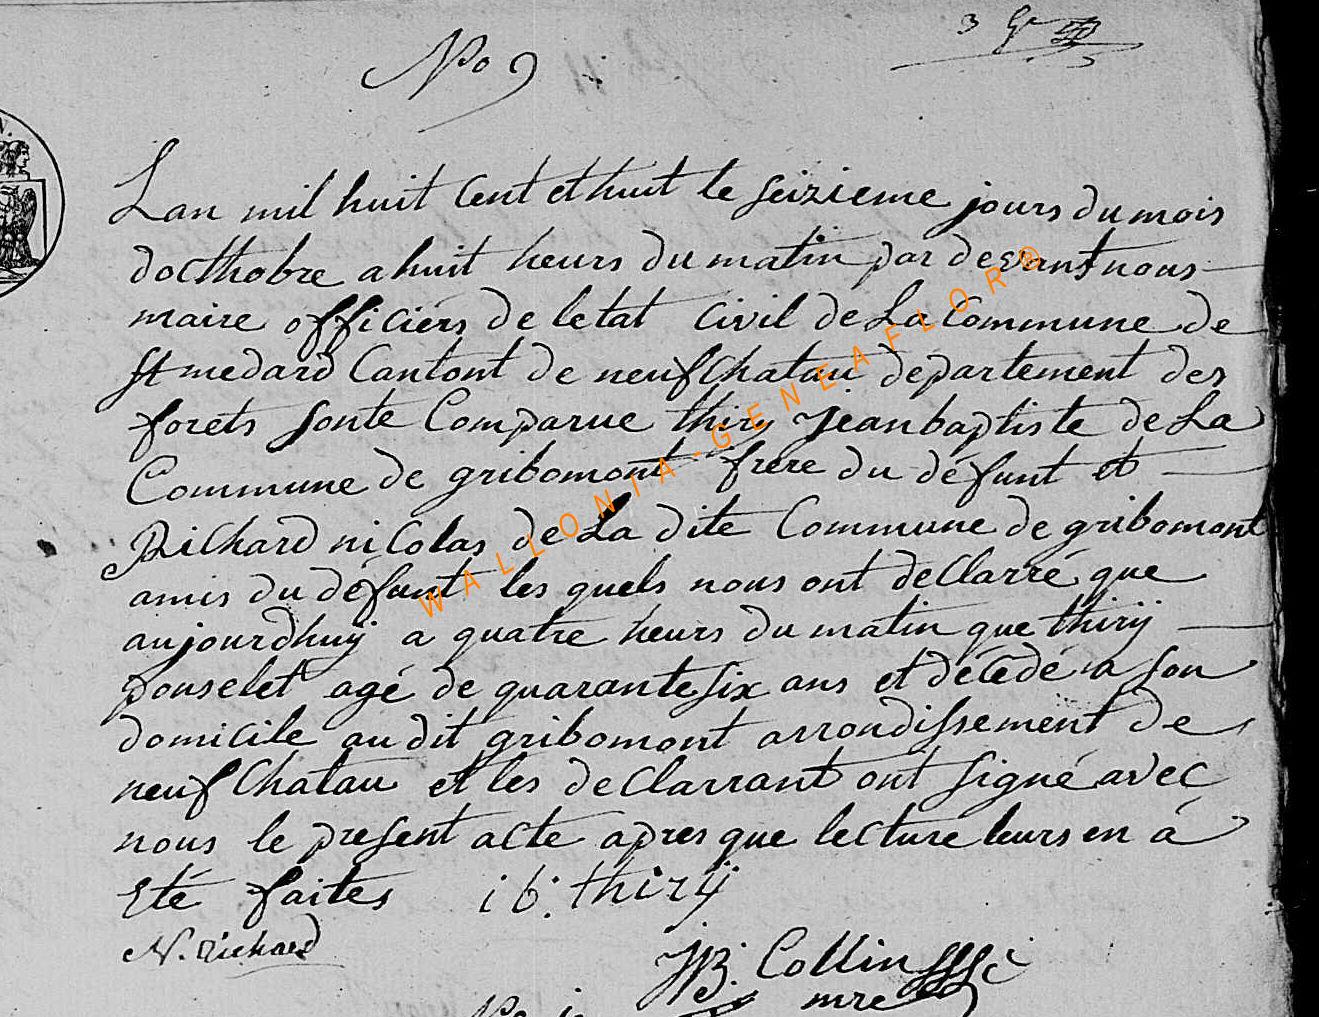 No 9
Lan mil huit Cent et huit le seizieme jours du mois
docthobre a huit heurs du matin par devant nous
maire officiers de letat civil de La Commune de
St medard Cantont de neufchatau departement des
forets sonte Comparue thiry jean baptiste de La
Commune de gribomont frere du défunt et
Richard nicolas de La dite Commune de gribomont
amis du défunt les quels nous ont declarré que
aujourdhuij a quatre heurs du matin que thirij
pouselet agé de quarante six ans et décédé a son
domicile au dit gribomont arrondissement de
neufchatau et les declarrant ont signé avec
nous le present acte apres que lecture leurs en á
Eté faites i b: thirÿ
N. richard
JB: Collin
mre
WALLONIA-GENEAFLOR®